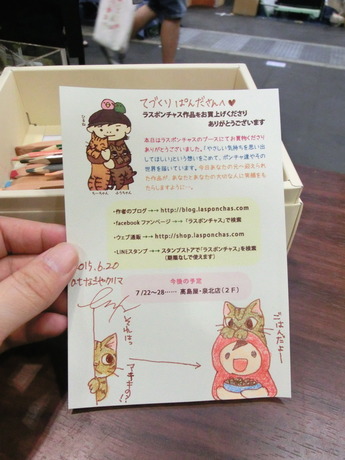 てづくりぱんださんへ♥
ラスポンチャス作品をお買上げくださり
ありがとうございます
本日はラスポンチャスのブースにてお買物くださり
ありがとうございました。「やさしい気持ちを思い出
してほしい」という想いをこめて、ポンチャ達や今の
世界を描いています。今日あなたの元へ迎えられ
た作品が、あなたとあなたの大切な人に笑顔をも
たらしますように…。
・作者のブログ →→ http://blog.lasponchas.com
・facebook ファンページ →→「ラスポンチャス」で検索
・ウェブ通販 →→ http://shop.lasponchas.com
・LINEスタンプ →→ スタンプストアで「ラスポンチャス」を検索
(期限なしで使えます)
今後の予定
7/22〜28…… 高島屋・泉北店(2F)
2015.6.20
ごはんだよー